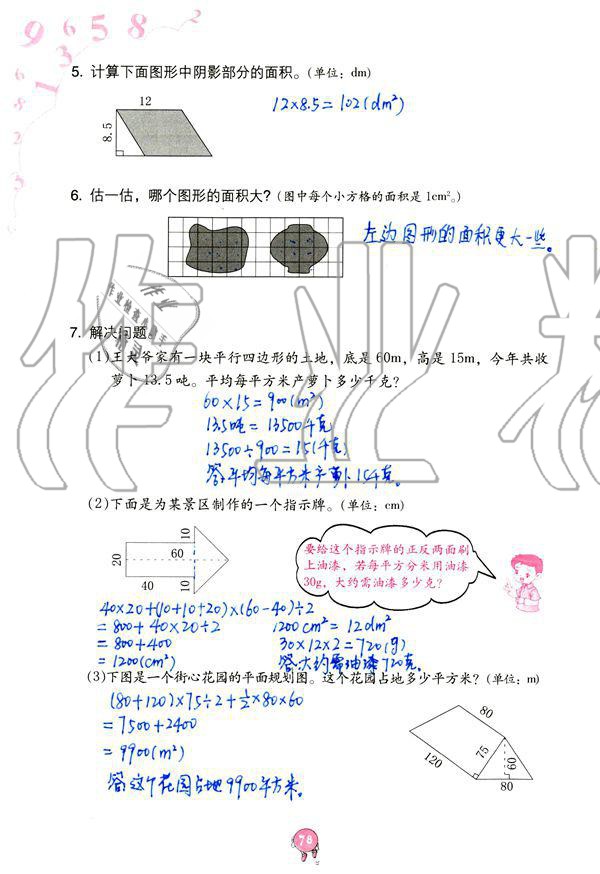 9 6 5 8 2
6 3
8 1
2
3
5. 计算下面图形中阴影部分的面积。(单位：dm)
12
8.5
12×8.5=102(dm²)
6. 估一估，哪个图形的面积大？(图中每个小方格的面积是1cm²。)
左边图形的面积更大一些。
7. 解决问题。
(1)王大爷家有一块平行四边形的土地，底是60m，高是15m，今年共收
萝卜13.5吨。平均每平方米产萝卜多少千克？
60×15=900(m²)
13.5吨=13500千克
13500÷900=15(千克)
答：平均每平方米产萝卜15千克。
(2)下面是为某景区制作的一个指示牌。(单位：cm)
10
20
60
40
10
要给这个指示牌的正反两面刷
上油漆，若每平方分米用油漆
30g，大约需油漆多少克？
40×20+(10+10+20)×(60-40)÷2
=800+40×20÷2
=800+400
=1200(cm²)
1200cm²=12dm²
30×12×2=720(g)
答：大约需油漆720克。
(3)下图是一个街心花园的平面规划图。这个花园占地多少平方米？(单位：m)
(80+120)×75÷2+½×80×60
=7500+2400
=9900(m²)
答：这个花园占地9900平方米。
80
120
75
60
80
78
作业精灵
作业检查小助手